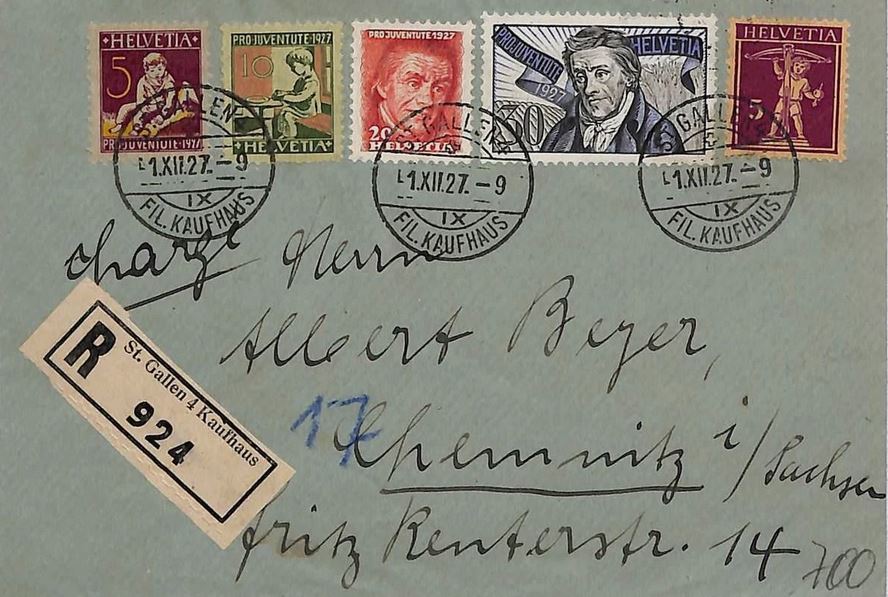 HELVETIA
5
PRO JUVENTUTE·1927
PRO JUVENTUTE·1927
10
HELVETIA
PRO JUVENTUTE 1927
20
HELVETIA
PRO JUVENTUTE
1927
HELVETIA
30
HELVETIA
5
ST. GALLEN
1.XII.27.-9
IX
FIL. KAUFHAUS
ST. GALLEN
1.XII.27.-9
IX
FIL. KAUFHAUS
ST. GALLEN
1.XII.27.-9
IX
FIL. KAUFHAUS
chargé Herrn
Albert Beyer,
17
Chemnitz i/Sachsen
Fritz Reuterstr. 14
700
R
St. Gallen 4 Kaufhaus
924